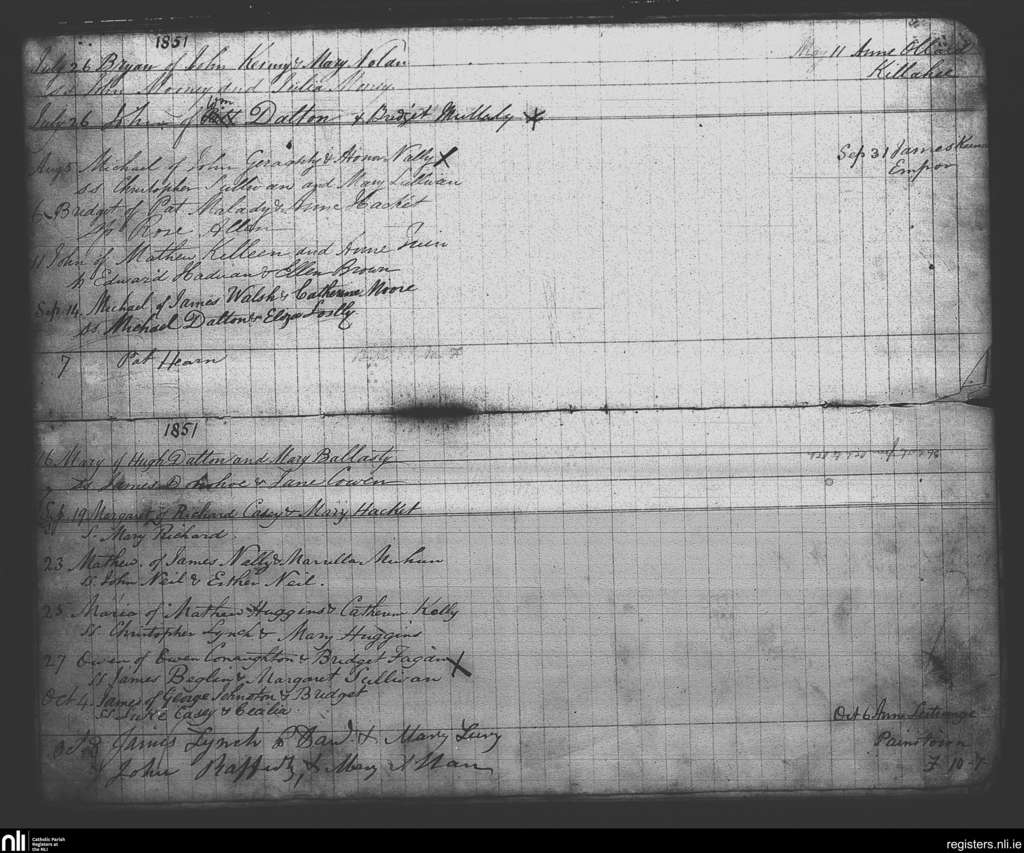 1851
July 26 Bryan of John Kenny & Mary Nolan
ss John Mooney and Julia Money
July 26 John of Wm Dalton & Bridget Mullaly X
Aug 5 Michael of John Geraghty & Honor Nally X
ss Christopher Sullivan and Mary Sullivan
6 Bridget of Pat Malady & Anne Hacket
Rose Allen
11 John of Mathew Killeen and Anne Quin
Edward Hadian & Ellen Brown
Sep 14 Michael of James Walsh & Catherine Moore
ss Michael Dalton & Eliza
7 Pat Hearn
May 11 Anne
Killahee
Sep 31 James
Empor
1851
16 Mary of Hugh Dalton and Mary Ballasty
ss James Donohoe & Jane Cowen
Sep 19 Margaret of Richard Casey & Mary Hacket
S. Mary Richard
23 Mathew of James Nally &
ss John Neil & Esther Neil.
25 Maria of Mathew Huggins & Catherin Kelly
ss Christopher Lynch & Mary Huggins
27 Owen of Owen Conaughton & Bridget Fagan X
ss James Beglin & Margaret Sullivan
Oct 4 James of George Johnston & Bridget
ss Luke Casey & Cecilia
Oct 8 James Lynch & Mary
John Rafferty & Mary
Oct 6 Anne Lestrange
Painstown
7 10 -
nli
Catholic Parish
Registers at
the NLI
registers.nli.ie